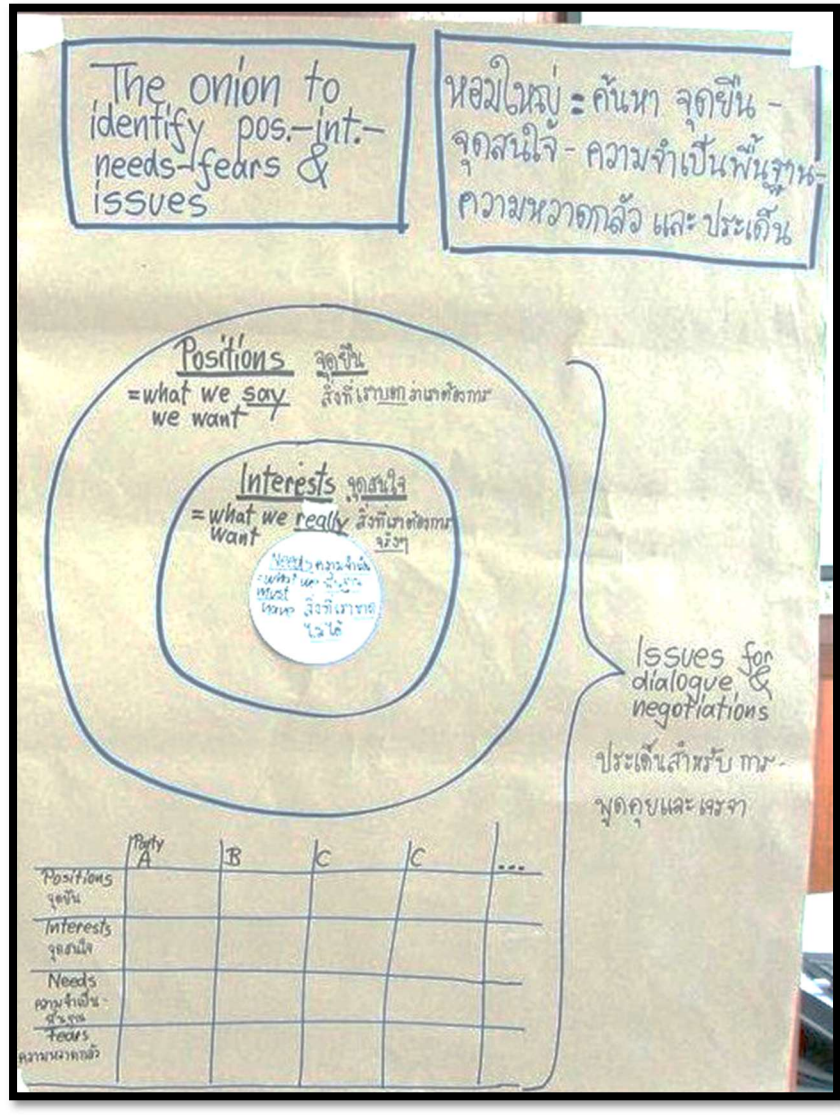 The onion to
identify pos.-int.-
needs-fears &
issues
หอมใหญ่ = ค้นหา จุดยืน -
จุดสนใจ - ความจำเป็นพื้นฐาน-
ความหวาดกลัว และ ประเด็น
Positions จุดยืน
=what we say สิ่งที่เราบอกว่าเราต้องการ
we want
Interests จุดสนใจ
= what we really สิ่งที่เราต้องการ
want จริงๆ
Needs ความจำเป็น
=what we พื้นฐาน
must
have สิ่งที่เราขาด
ไม่ได้
Issues for
dialogue &
negotiations
ประเด็นสำหรับ การ-
พูดคุยและเจรจา
Party
A B C C ...
Positions
จุดยืน
Interests
จุดสนใจ
Needs
ความจำเป็น-
พื้นฐาน
Fears
ความหวาดกลัว